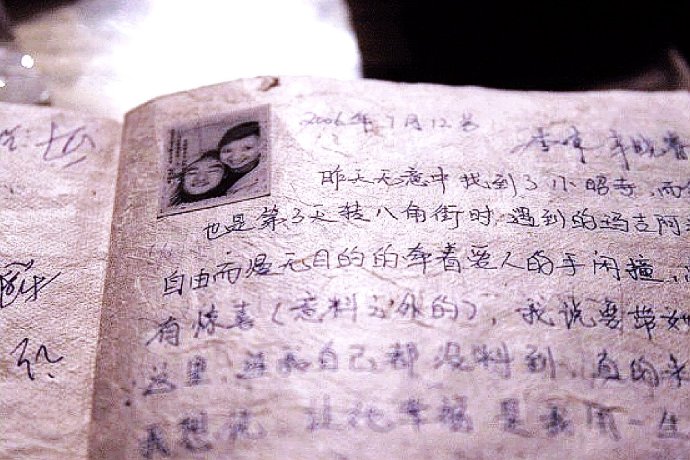 2006年7月12号
昨天无意中找到了小昭寺，而
也是第3天转八角街时，遇到的玛吉阿
自由而漫无目的的牵着爱人的手闲撞，
有惊喜（意料之外的），我说要带她
这里，连我自己都没料到，真的来
我想说，让她幸福是我用一生